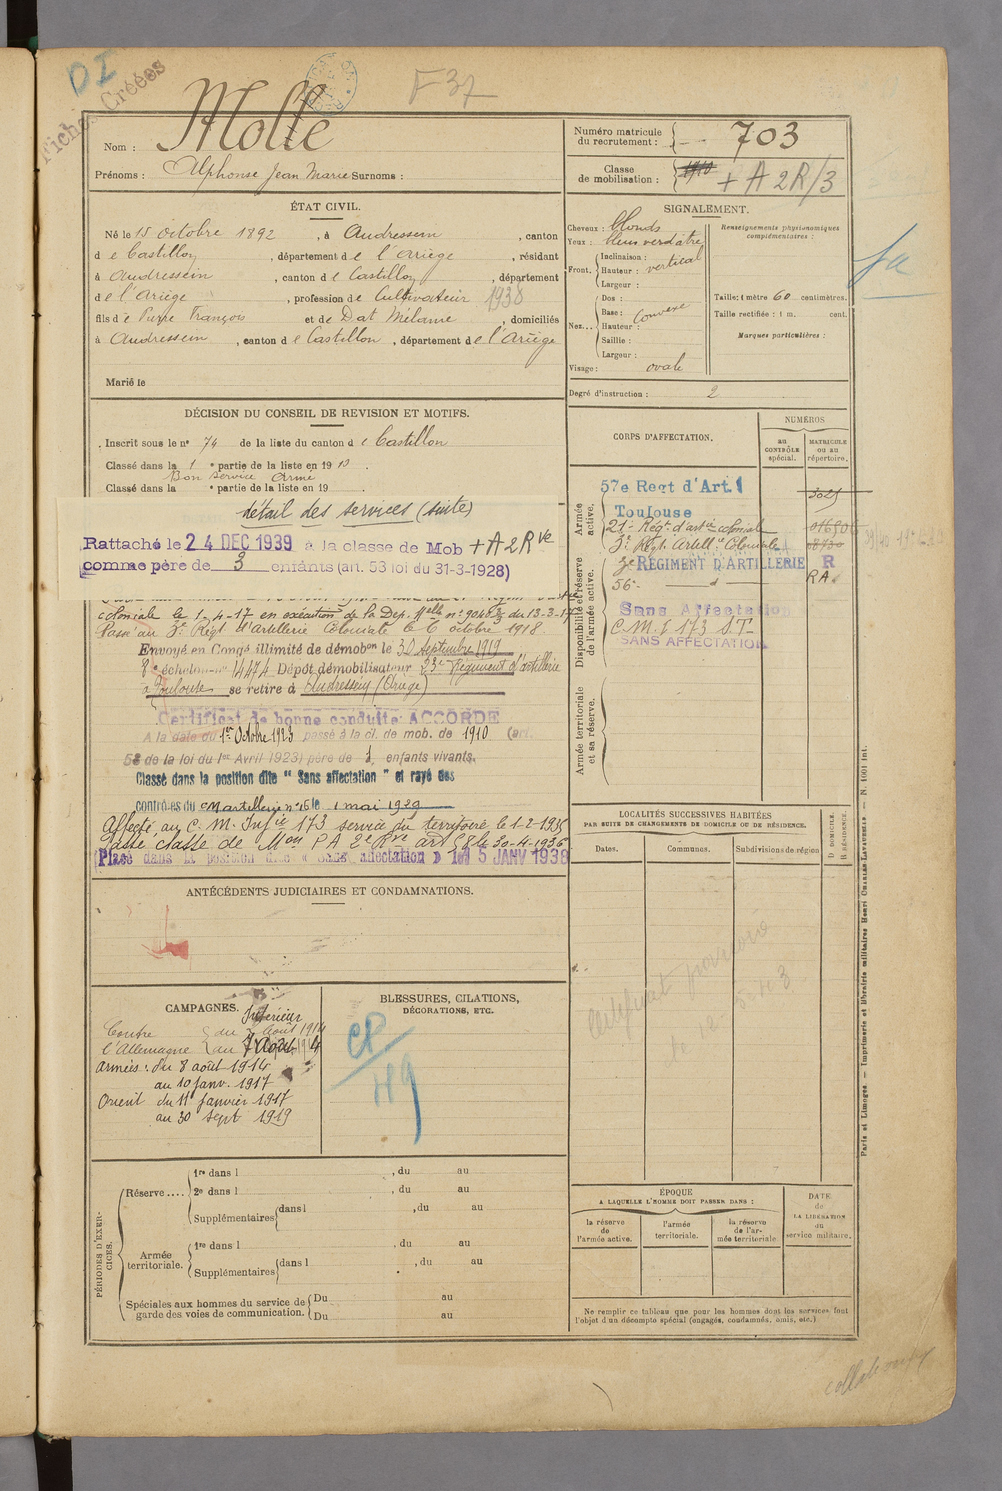 DI
Fiches Créées
F 37
Nom : Molle
Prénoms : Alphonse Jean Marie Surnoms :
Numéro matricule du recrutement : 703
Classe de mobilisation : 1910 + A 2R/3
ÉTAT CIVIL.
Né le 15 octobre 1892, à Audressein, canton
de Castillon, département de l'Ariège, résidant
à Audressein, canton de Castillon, département
de l'Ariège, profession de Cultivateur 1938
fils de Pierre François et de Dat Mélanie, domiciliés
à Audressein, canton de Castillon, département de l'Ariège
Marié le
SIGNALEMENT.
Cheveux : blonds
Yeux : bleus verdâtre
Front. Inclinaison :
Hauteur : vertical
Largeur :
Nez... Dos :
Base : Convexe
Hauteur :
Saillie :
Largeur :
Visage : ovale
Renseignements physionomiques complémentaires :
Taille : 1 mètre 60 centimètres.
Taille rectifiée : 1 m. cent.
Marques particulières :
Degré d'instruction : 2
DÉCISION DU CONSEIL DE REVISION ET MOTIFS.
Inscrit sous le n° 74 de la liste du canton de Castillon
Classé dans la 1e partie de la liste en 1913.
Bon service armé
Classé dans la e partie de la liste en 19
détail des services (suite)
Rattaché le 24 DEC 1939 à la classe de Mob + A 2 Rve
comme père de 3 enfants (art. 53 loi du 31-3-1928)
coloniale le 1-4-17 en exécution de la Dep. Melle n° 9048 du 13-3-17
Passé au 3e Régt d'Artillerie Coloniale le 6 octobre 1918.
Envoyé en Congé illimité de démobon le 30 septembre 1919
8e échelon n° 14474 Dépôt démobilisateur 23e Régiment d'artillerie
à Toulouse se retire à Audressein (Ariège)
Certificat de bonne conduite ACCORDÉ
A la date du 1er Octobre 1923 passé à la cl. de mob. de 1910 (art.
58 de la loi du 1er Avril 1923) père de 1 enfants vivants.
Classé dans la position dite " Sans affectation " et rayé des
contrôles du CM artillerie n° 16 le 1 mai 1929
Affecté au C. M. Infie 173 service du territoire le 1-2-1935
Passé classe de Mon P A 2e Rve art 58 le 30-4-1936
Placé dans la position dite « Sans affectation » le 15 JANV 1938
CORPS D'AFFECTATION.
NUMÉROS
au CONTRÔLE spécial.
MATRICULE OU AU répertoire.
Armée active.
57e Regt d'Art.
Toulouse
3025
21e Régt d'artie coloniale
3e Régt Artelle Coloniale
Disponibilité et réserve de l'armée active.
3e RÉGIMENT D'ARTILLERIE R
56e RA
Sans Affectation
C. M. I 173 S.T.
SANS AFFECTATION
Armée territoriale et sa réserve.
LOCALITÉS SUCCESSIVES HABITÉES
PAR SUITE DE CHANGEMENTS DE DOMICILE OU DE RÉSIDENCE.
Dates.
Communes.
Subdivisions de région
D DOMICILE.
R RÉSIDENCE.
ANTÉCÉDENTS JUDICIAIRES ET CONDAMNATIONS.
CAMPAGNES.
Intérieur
Contre l'Allemagne du 3 août 1914
au 7 Août 1914
Armées : du 8 août 1914
au 10 janv. 1917
Orient du 11 janvier 1917
au 30 sept 1919
BLESSURES, CITATIONS,
DÉCORATIONS, ETC.
CP
PÉRIODES D'EXERCICES.
Réserve.... 1re dans l , du au
2e dans l , du au
Supplémentaires dans l , du au
Armée territoriale. 1re dans l , du au
Supplémentaires dans l , du au
Spéciales aux hommes du service de garde des voies de communication. Du au
Du au
ÉPOQUE
A LAQUELLE L'HOMME DOIT PASSER DANS :
la réserve de l'armée active.
l'armée territoriale.
la réserve de l'armée territoriale
DATE de LA LIBÉRATION du service militaire.
Ne remplir ce tableau que pour les hommes dont les services font
l'objet d'un décompte spécial (engagés, condamnés, omis, etc.)
Paris et Limoges. — Imprimerie et librairie militaires Henri CHARLES-LAVAUZELLE. — N. 1001 int.